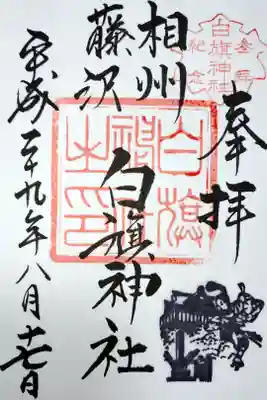 奉拝
白旗神社
参拝
紀念
相州
藤沢
白旗神社
白旗神社之印
平成二十九年八月十七日